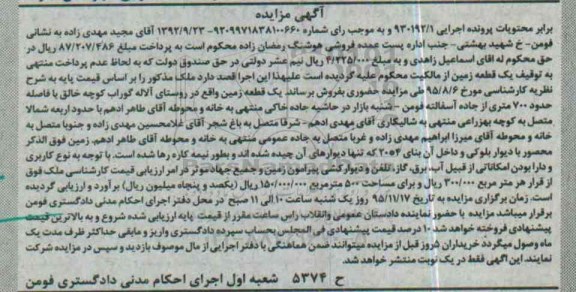 آگهی مزایده
برابر محتویات پرونده اجرایی ۹۳۰۱۹۲/۱ و به موجب رای شماره ۹۳۰۹۹۷۱۸۳۸۱۰۰۶۶۰-۱۳۹۲/۹/۲۳ آقای مجید مهدی زاده به نشانی
فومن- خ شهید بهشتی- جنب اداره پست عمده فروشی هوشنگ رمضان زاده محکوم است به پرداخت مبلغ ۸۷/۲۰۷/۳۸۶ ریال در
حق محکوم له اقای اسماعیل زاهدی و به مبلغ ۴/۳۲۵/۰۰۰ ریال نیم عشر دولتی در حق صندوق دولت که به لحاظ عدم پرداخت منتهی
به توقیف یک قطعه زمین از مالکیت محکوم علیه گردیده است علیهذا این اجرا قصد دارد ملک مذکور را بر اساس قیمت پایه به شرح
نظریه کارشناسی مورخ ۹۵/۸/۶ طی مزایده حضوری بفروش برساند. یک قطعه زمین واقع در روستای آلاله گوراب کوچه خالق با فاصله
حدود ۷۰۰ متری از جاده آسفالته فومن - شنبه بازار در حاشیه جاده خاکی منتهی به خانه و محوطه آقای طاهر ادهم با حدود اربعه شمالا
متصل به کوچه بهزراعی منتهی به شالیکاری آقای مهدی ادهم- شرقا متصل به باغ شجر آقای غلامحسین مهدی زاده و جنوبا متصل به
خانه و محوطه آقای میرزا ابراهیم مهدی زاده و غربا متصل به جاده عمومی منتهی به خانه و محوطه آقای طاهر ادهم. زمین فوق الذکر
محصور با دیوار بلوکی و داخل آن بنای که تنها دیوارهای آن چیده شده اند و بطور نیمه کاره رها شده است. با توجه به نوع کاربری
و دارا بودن امکاناتی از قبیل آب، برق، گاز، تلفن و دیوار کشی پیرامون زمین و جمیع جهات موثر در امر ارزیابی قیمت کارشناسی ملک فوق
از قرار هر متر مربع ۳۰۰/۰۰۰ ریال و برای مساحت ۵۰۰ مترمربع ۱۵۰/۰۰۰/۰۰۰ ریال (یکصد و پنجاه میلیون ریال) بر آورد و ارزیابی گردیده
است. زمان برگزاری مزایده به تاریخ ۹۵/۱۱/۱۷ روز یک شنبه ساعت ۱۰ الی ۱۱ صبح در محل دفتر اجرای احکام مدنی دادگستری فومن
برقرار میباشد مزایده با حضور نماینده دادستان عمومی وانقلاب راس ساعت مقرر از قیمت پایه ارزیابی شده شروع و به بالاترین قیمت
پیشنهادی فروخته خواهد شد ۱۰ درصد قیمت پیشنهادی فی المجلس بحساب سپرده دادگستری واریز و مابقی حداکثر ظرف مدت یک
ماه وصول میگردد خریداران ۵روز قبل از مزایده میتوانند ضمن هماهنگی با دفتر اجرایی از مال موصوف بازدید و سپس در مزایده شرکت
نمایند. این آگهی فقط در یک نوبت منتشر خواهد شد.
ح ۵۳۷۴ شعبه اول اجرای احکام مدنی دادگستری فومن